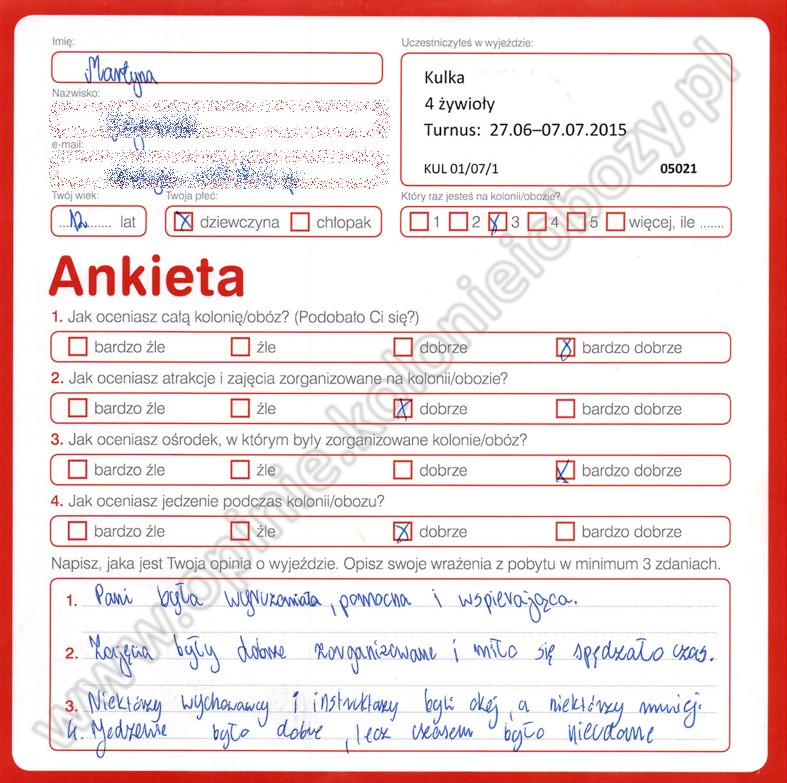 Imię:
Martyna
Nazwisko:
e-mail:
Twój wiek:
12 lat
Twoja płeć:
dziewczyna chłopak
Uczestniczyłeś w wyjeździe:
Kulka
4 żywioły
Turnus: 27.06–07.07.2015
KUL 01/07/1 05021
Który raz jesteś na kolonii/obozie?
1 2 3 4 5 więcej, ile .......
Ankieta
1. Jak oceniasz całą kolonię/obóz? (Podobało Ci się?)
bardzo źle źle dobrze bardzo dobrze
2. Jak oceniasz atrakcje i zajęcia zorganizowane na kolonii/obozie?
bardzo źle źle dobrze bardzo dobrze
3. Jak oceniasz ośrodek, w którym były zorganizowane kolonie/obóz?
bardzo źle źle dobrze bardzo dobrze
4. Jak oceniasz jedzenie podczas kolonii/obozu?
bardzo źle źle dobrze bardzo dobrze
Napisz, jaka jest Twoja opinia o wyjeździe. Opisz swoje wrażenia z pobytu w minimum 3 zdaniach.
1. Pani była wyruzumiała, pomocna i wspierająca.
2. Zajęcia były dobrze zorganizowane i miło się spędzało czas.
3. Niektórzy wychowawcy i instruktorzy byli okej, a niektórzy mniej.
4. Jedzenie było dobre, lecz czasem było nieudane
www.opinie.kolonieiobozy.pl